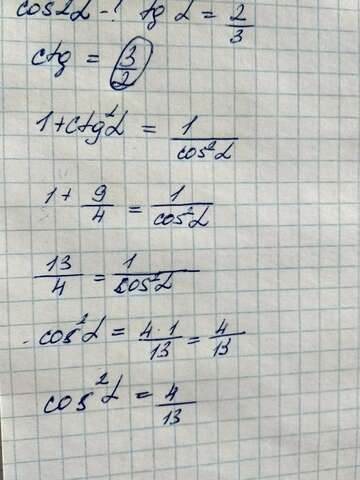 cos2α - ? tg α = 2/3
ctg = 3/2
1 + ctg²α = 1/cos²α
1 + 9/4 = 1/cos²α
13/4 = 1/cos²α
cos²α = 4·1/13 = 4/13
cos²α = 4/13